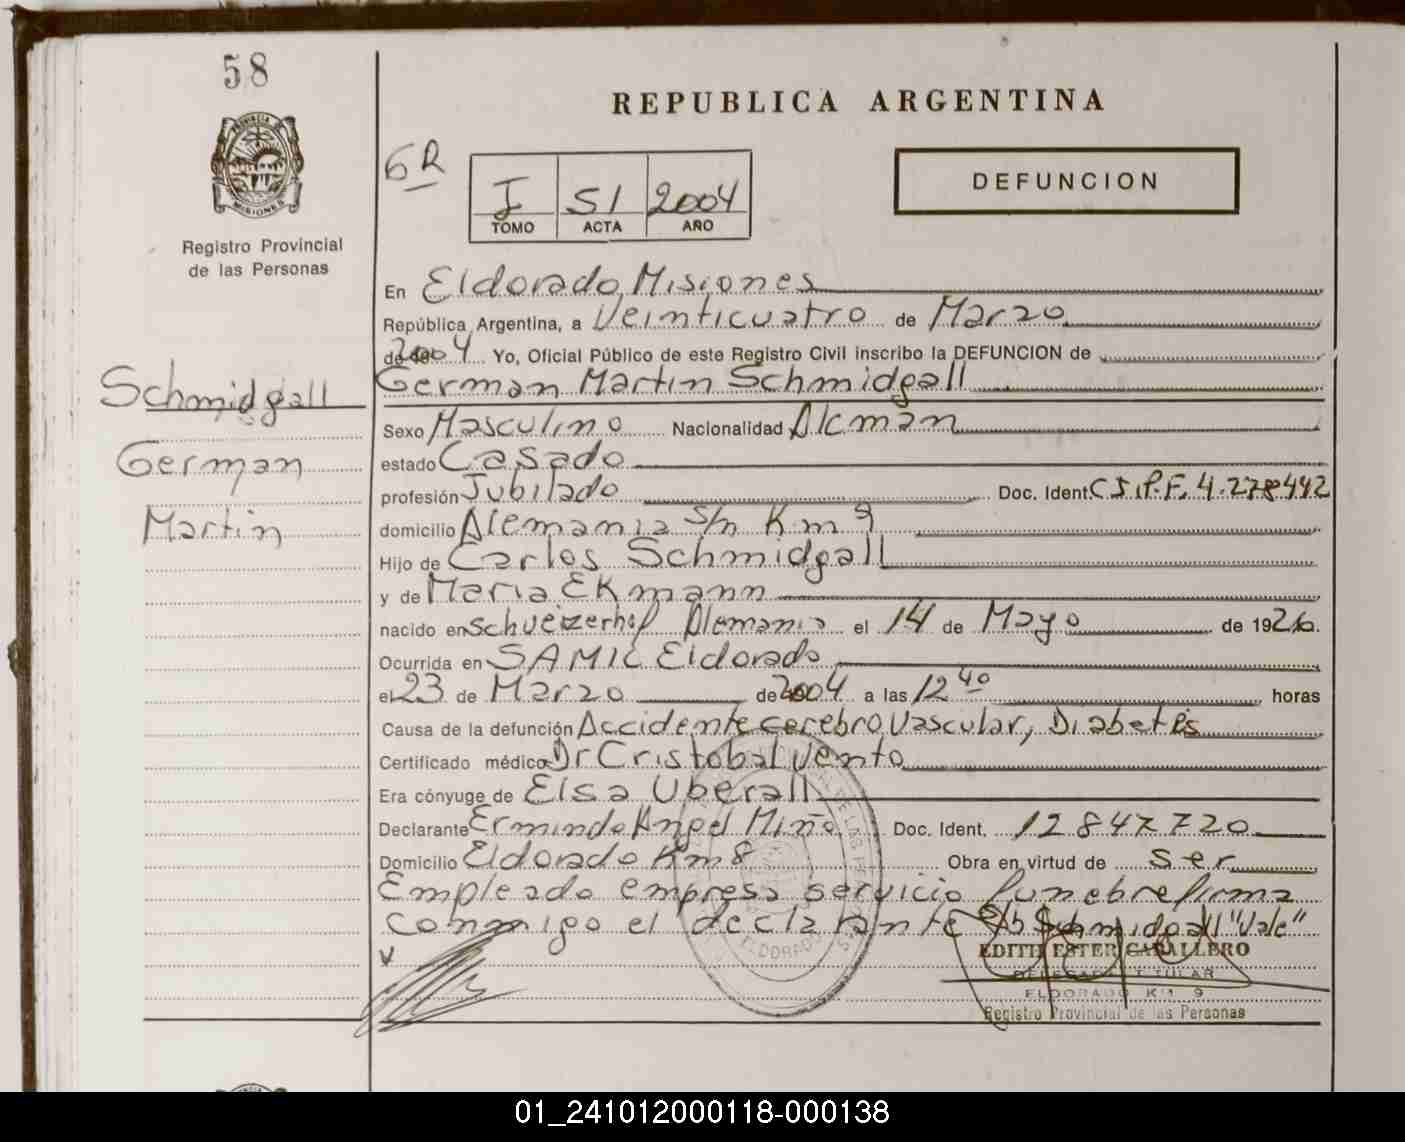 58
REPUBLICA ARGENTINA
6R
I 51 2004
TOMO ACTA AÑO
DEFUNCION
PROVINCIA DE MISIONES
Registro Provincial
de las Personas
Schmidgall
German
Martin
En Eldorado Misiones
República Argentina, a Veinticuatro de Marzo
de 2004 Yo, Oficial Público de este Registro Civil inscribo la DEFUNCION de
German Martin Schmidgall
Sexo Masculino Nacionalidad Aleman
estado Casado
profesión Jubilado Doc. Ident. C.I.P.F. 4.278442
domicilio Alemania S/n Km 9
Hijo de Carlos Schmidgall
y de Maria Ekmann
nacido en Schueizerhof Alemania el 14 de Mayo de 1926.
Ocurrida en SAMIC Eldorado
el 23 de Marzo de 2004 a las 12 40 horas
Causa de la defunción Accidente cerebro Vascular, Diabetes
Certificado médico Dr Cristobal Vento
Era cónyuge de Elsa Uberall
Declarante Ermindo Angel Miño Doc. Ident. 12847720
Domicilio Eldorado Km 8 Obra en virtud de ser
Empleado empresa servicio funebre firma
conmigo el declarante Schmidgall "Vale"
ELDORADO
EDITH ESTER CABALLERO
DELEGADA TITULAR
ELDORADO KM 9
Registro Provincial de las Personas
01_241012000118-000138